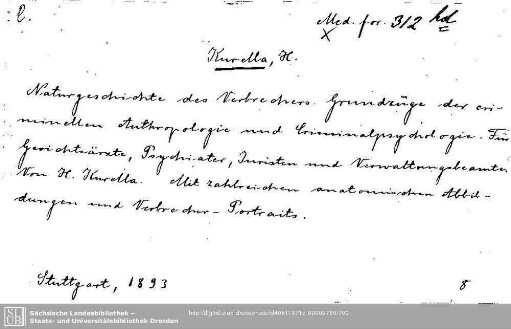 Med. for. 312 hd
Kurella, H.
Naturgeschichte des Verbrechers. Grundzüge der cri-
minellen Anthropologie und Criminalpsychologie. Für
Gerichtsärzte, Psychiater, Juristen und Verwaltungsbeamte
Von H. Kurella. Mit zahlreichen anatomischen Abbil-
dungen und Verbrecher-Portraits.
Stuttgart, 1893 8
SLUB Sächsische Landesbibliothek –
Staats- und Universitätsbibliothek Dresden